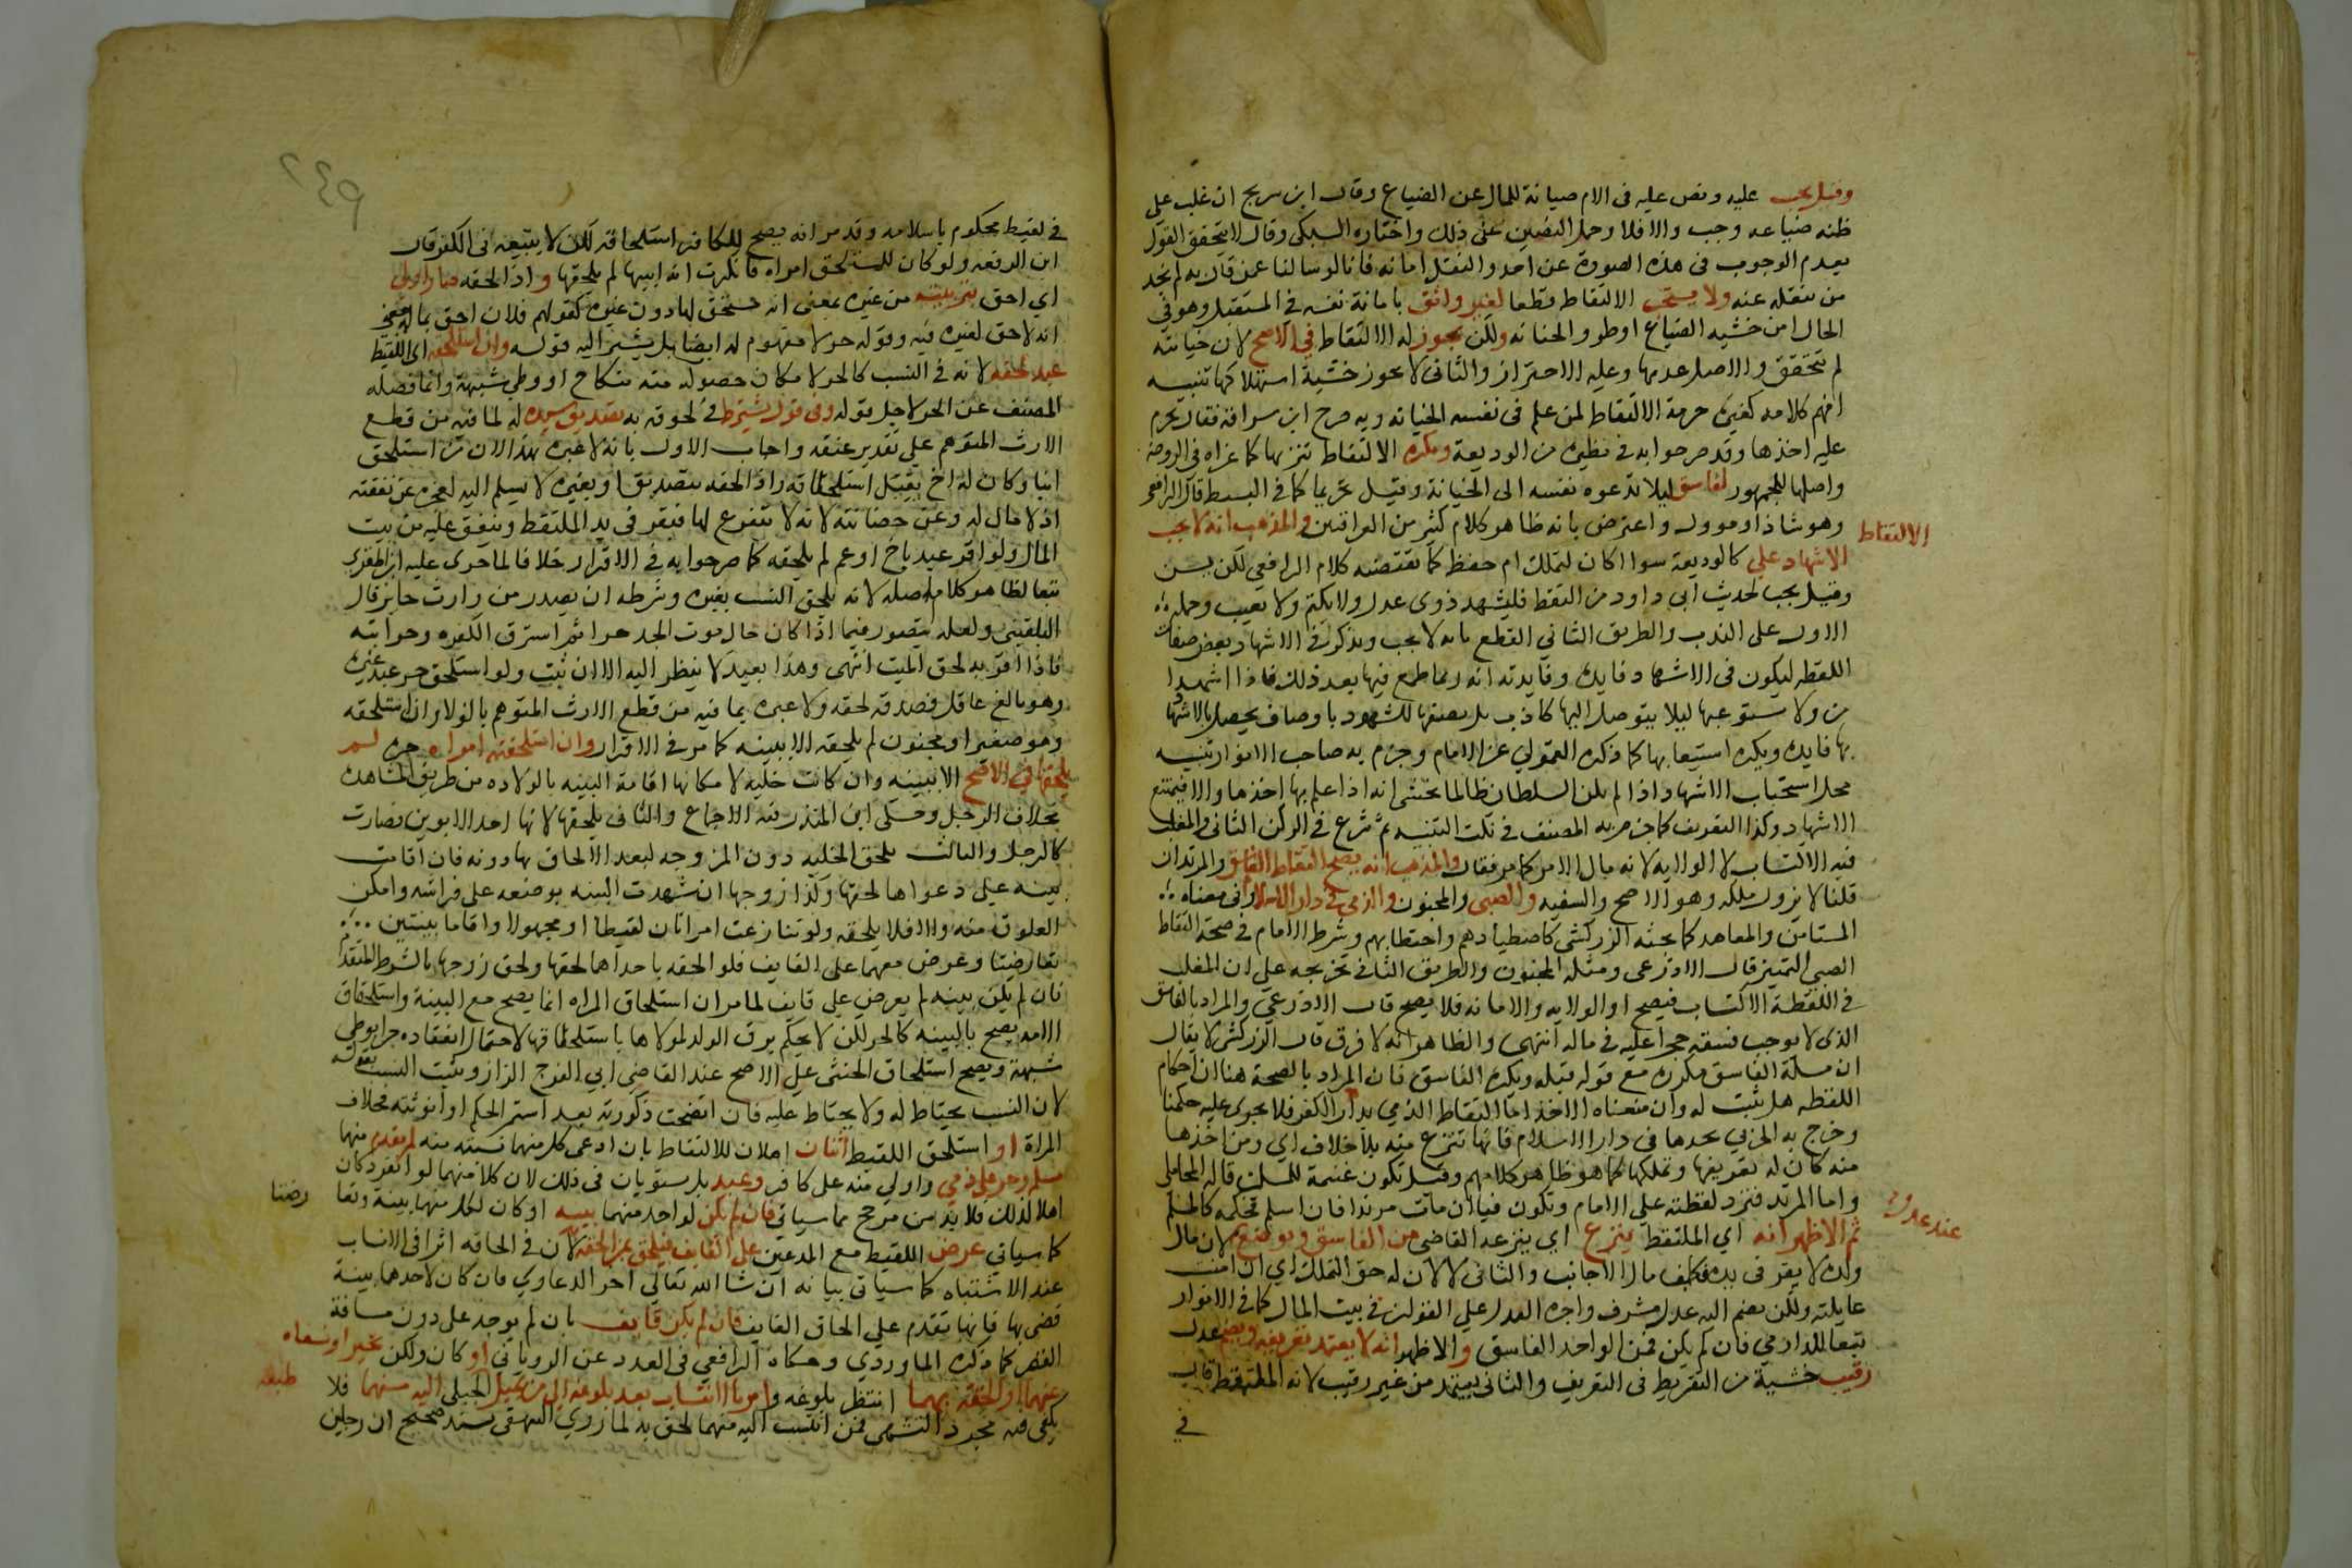 وقيل يجب عليه ونص عليه في الام صيانة للمال عن الضياع وقال ابن سريج ان غلب على
ظنه ضياعه وجب والا فلا وحمل النصين على ذلك واختاره السبكي وقال لا يتحقق القول
بعدم الوجوب في هذه الصورة عن احد والنقل امانه فانا لو سالنا عن قال به لم نجد
من ننقله عنه ولا يستحب الالتقاط قطعا لغير واثق بامانة نفسه في المستقبل وهو في
الحال امن خشية الضياع او طرو الخيانه ولكن يجوز له الالتقاط في الاصح لان خيانته
لم تتحقق والاصل عدمها وعليه الاحتراز والثاني لا يجوز خشية استهلاكها تنبيه
افهم كلامه كغيره حرمة الالتقاط لمن علم في نفسه الخيانه وبه صرح ابن سراقة فقال يحرم
عليه اخذها وقد صرحوا به في نظيره من الوديعة ويكره الالتقاط تنزيها كما عزاه في الروضة
واصلها للجمهور لفاسق ليلا تدعوه نفسه الى الخيانة وقيل تحريما كما في البسيط قال الرافعي
وهو شاذ او موول واعترض بانه ظاهر كلام كثير من العراقيين والمذهب انه لا يجب
الالتقاط
الاشهاد على كالوديعة سوا اكان لتملك ام حفظ كما يقتضيه كلام الرافعي لكن يسن
وقيل يجب لحديث ابي داود من التقط فليشهد ذوى عدل ولا يكتم ولا يغيب وحمله
الاول على الندب والطريق الثاني القطع بانه لا يجب ويذكر في الاشهاد بعض صفات
اللقطه ليكون في الاشهاد فايدة وفايدته انه ربما طمع فيها بعد ذلك فاذا اشهد
من ولا يستوعبها ليلا يتوصل اليها كاذب بل يصفها للشهود باوصاف يحصل بالاشهاد
بها فايدة ويكره استيعابها كما ذكره القمولي عن الامام وجزم به صاحب الانوار تنبيه
محل استحباب الاشهاد اذا لم يكن السلطان ظالما يخشى انه اذا علم بها اخذها والا فيمتنع
الاشهاد وكذا التعريف كما جزم به المصنف في نكت التنبيه ثم شرع في الركن الثاني والمغلب
فيه الاكتساب لا الولايه لانه مال الامر كما مر فقال والمذهب انه يصح التقاط الفاسق والمرتد ان
قلنا لا يزول ملكه وهو الاصح والسفيه والصبي والمجنون والذمي في دار الاسلام وفي معناه
المستامن والمعاهد كما بحثه الزركشي كاصطيادهم واحتطابهم وشرط الامام في صحة التقاط
الصبي التمييز قال الاذرعي ومثله المجنون والطريق الثاني تخريجه على ان المغلب
في اللقطة الاكتساب فيصح او الولايه والامانه فلا يصح قال الاذرعي والمراد بالفاسق
الذي لا يوجب فسقه حجرا عليه في ماله انتهى والظاهر انه لا فرق قال الزركشي لا يقال
ان مسئلة الفاسق مكررة مع قوله قبله ويكره لفاسق فان المراد بالصحة هنا ان احكام
اللقطه هل تثبت له وان منعناه الاخذ اما التقاط الذمي بدار الكفر فلا يجرى عليه حكمنا
وخرج به الحربي يجدها في دار الاسلام فانها تنتزع منه بلا خلاف اي ومن اخذها
منه كان له تعريفها وتملكها كما هو ظاهر كلامهم وقيل تكون غنيمة للمسلمين قاله المحاملي
واما المرتد فترد لقطته على الامام وتكون فيا ان مات مرتدا فان اسلم فحكمه كالمسلم
ثم الاظهر انه اي الملتقط ينزع اي ينزعه القاضي من الفاسق ويوضع لان مال
عند عدل
ولده لا يقر في يده فكيف مال الاجانب والثاني لا لان له حق التملك اي ان امنت
غايلته ولكن يضم اليه عدل مشرف واجرة العدل على القولين في بيت المال كما في الانوار
تبعا للدارمي فان لم يكن فمن الواحد الفاسق والاظهر انه لا يعتد بتعريفه ويضم عدل
رقيب خشية من التفريط في التعريف والثاني يعتد من غير رقيب لانه الملتقط قاب
في
في لقيط محكوم باسلامه وقد مر انه يصح للكافر استلحاقه لكن لا يتبعه في الكفر قال
ابن الرفعه ولو كان للمستلحق امراة فانكرت انه ابنها لم يلحقها واذا لحقه صار اولى
اي احق بتربيته من غيره بمعنى انه مستحق لها دون غيره كقولهم فلان احق بماله بمعنى
انه لا حق لغيره فيه وقوله حر لا مفهوم له ايضا بل يشير اليه قوله وان استلحقه اي اللقيط
عبد لحقه لانه في النسب كالحر لامكان حصوله منه بنكاح او وطى شبهة وانما فصله
المصنف عن الحر لاجل قوله وفي قول يشترط في لحوقه به تصديق سيده له لما فيه من قطع
الارث المتوهم على تقدير عتقه واجاب الاول بانه لا عبرة بهذا لان من استلحق
ابنا وكان له اخ يقبل استلحاقه واذا لحقه بتصديق او بغيره لا يسلم اليه لعجزه عن نفقته
اذ لا مال له وعن حضانته لانه لا يتفرغ لها فيقر في يد الملتقط وينفق عليه من بيت
المال ولو اقر عبد باخ او عم لم يلحقه كما صرحوا به في الاقرار خلافا لما جرى عليه ابن المقري
تبعا لظاهر كلام اصله لانه يلحق النسب بغيره وشرطه ان يصدر من وارث حايز قال
البلقيني ولعله يتصور فيما اذا كان حال موت الجد حرا ثم استرق لكفره وحرابته
فاذا اقر به لحق الميت انتهى وهذا بعيد لا ينظر اليه الا ان ثبت ولو استلحق حر عبد غيره
وهو بالغ عاقل فصدقه لحقه ولا عبرة بما فيه من قطع الارث المتوهم بالولا وان استلحقه
وهو صغير او مجنون لم يلحقه الا ببينه كما مر في الاقرار وان استلحقته امراه حرة لم
يلحقها في الاصح الا ببينه وان كانت خليه لامكانها اقامة البينه بالولاده من طريق المشاهدة
بخلاف الرجل وحكى ابن المنذر فيه الاجماع والثاني يلحقها لانها احد الابوين فصارت
كالرجل والثالث يلحق الخليه دون المزوجه لبعد الالحاق بها دونه فان اقامت
بينه على دعواها لحقها وكذا زوجها ان شهدت البينه بوضعه على فراشه وامكن
العلوق منه والا فلا يلحقه ولو تنازعت امراتان لقيطا او مجهولا واقاما بينتين
تعارضتا وعرض معهما على القايف فلو الحقه باحداهما لحقها ولحق زوجها بالشرط المتقدم
فان لم يكن بينه لم يعرض على قايف لما مر ان استلحاق المراه انما يصح مع البينة واستلحاق
الامه يصح بالبينه كالحر لكن لا يحكم برق الولد لمولاها باستلحاقها لاحتمال انعقاده حرا بوطى
شبهة ويصح استلحاق الخنثى على الاصح عند القاضي ابي الفرج الزاز ويثبت النسب بقوله
لان النسب يحتاط له ولا يحتاط عليه فان اتضحت ذكورته بعد استمر الحكم او انوثته فخلاف
المراة او استلحق اللقيط اثنان اهلان للالتقاط بان ادعى كل منهما نسبه منه لم يقدم منهما
مسلم وحر على ذمي واولى منه على كافر وعبد بل يستويان في ذلك لان كلا منهما لو انفرد كان
اهلا لذلك فلا بد من مرجح مما سياتي فان لم يكن لواحد منهما بينه او كان لكل منهما بينة وتعا
رضتا
كما سياتي عرض اللقيط مع المدعيين على القايف فيلحق من الحقه لان في الحاقه اثرا في الانساب
عند الاشتباه كما سياتي بيانه ان شا الله تعالى اخر الدعاوي فان كان لاحدهما بينة
قضى بها فانها تقدم على الحاق القايف فان لم يكن قايف بان لم يوجد على دون مسافة
القصر كما ذكره الماوردي وحكاه الرافعي في العدد عن الروياني او كان ولكن تحير او نفاه
عنهما او الحقه بهما انتظر بلوغه وامر بالانتساب بعد بلوغه الى من يميل الجبلي اليه منهما فلا
طبعه
يكفي فيه مجرد التشهي فمن انتسب اليه منهما لحق به لما روى البيهقي بسند صحيح ان رجلين